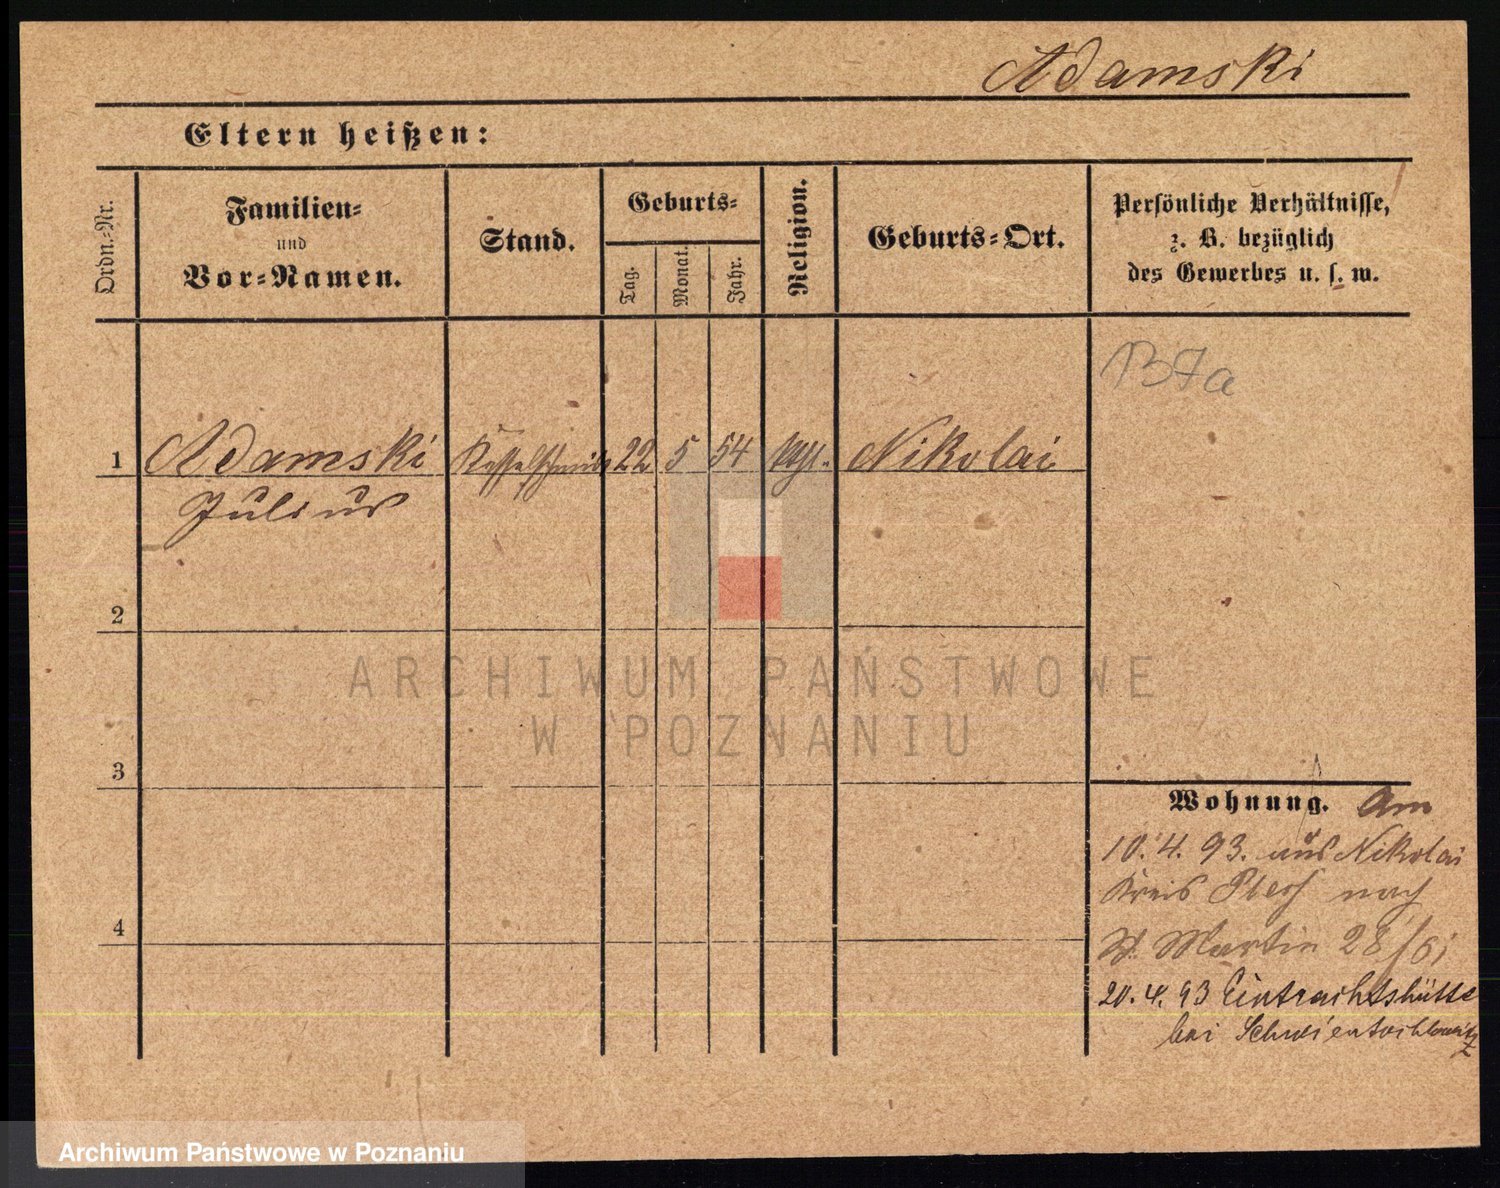 Adamski
Eltern heißen:
Ordn.-Nr.
Familien-
und
Vor-Namen.
Stand.
Geburts-
Tag.
Monat.
Jahr.
Religion.
Geburts-Ort.
Persönliche Verhältnisse,
z. B. bezüglich
des Gewerbes u. s. w.
137a
1 Adamski Kesselschmied 22 5 54 kath. Nikolai
Julius
2
ARCHIWUM PAŃSTWOWE
W POZNANIU
3
Wohnung. Am
10.4.93. aus Nikolai
Kreis Pless nach
St. Martin 28/
4
20.4.93 Eintrachtshütte
bei Schwientochlowitz
Archiwum Państwowe w Poznaniu